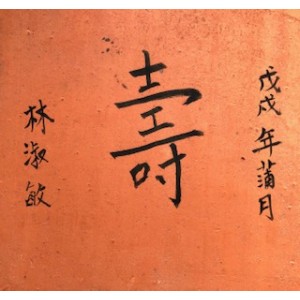 戊戌年蒲月
壽
林淑敏